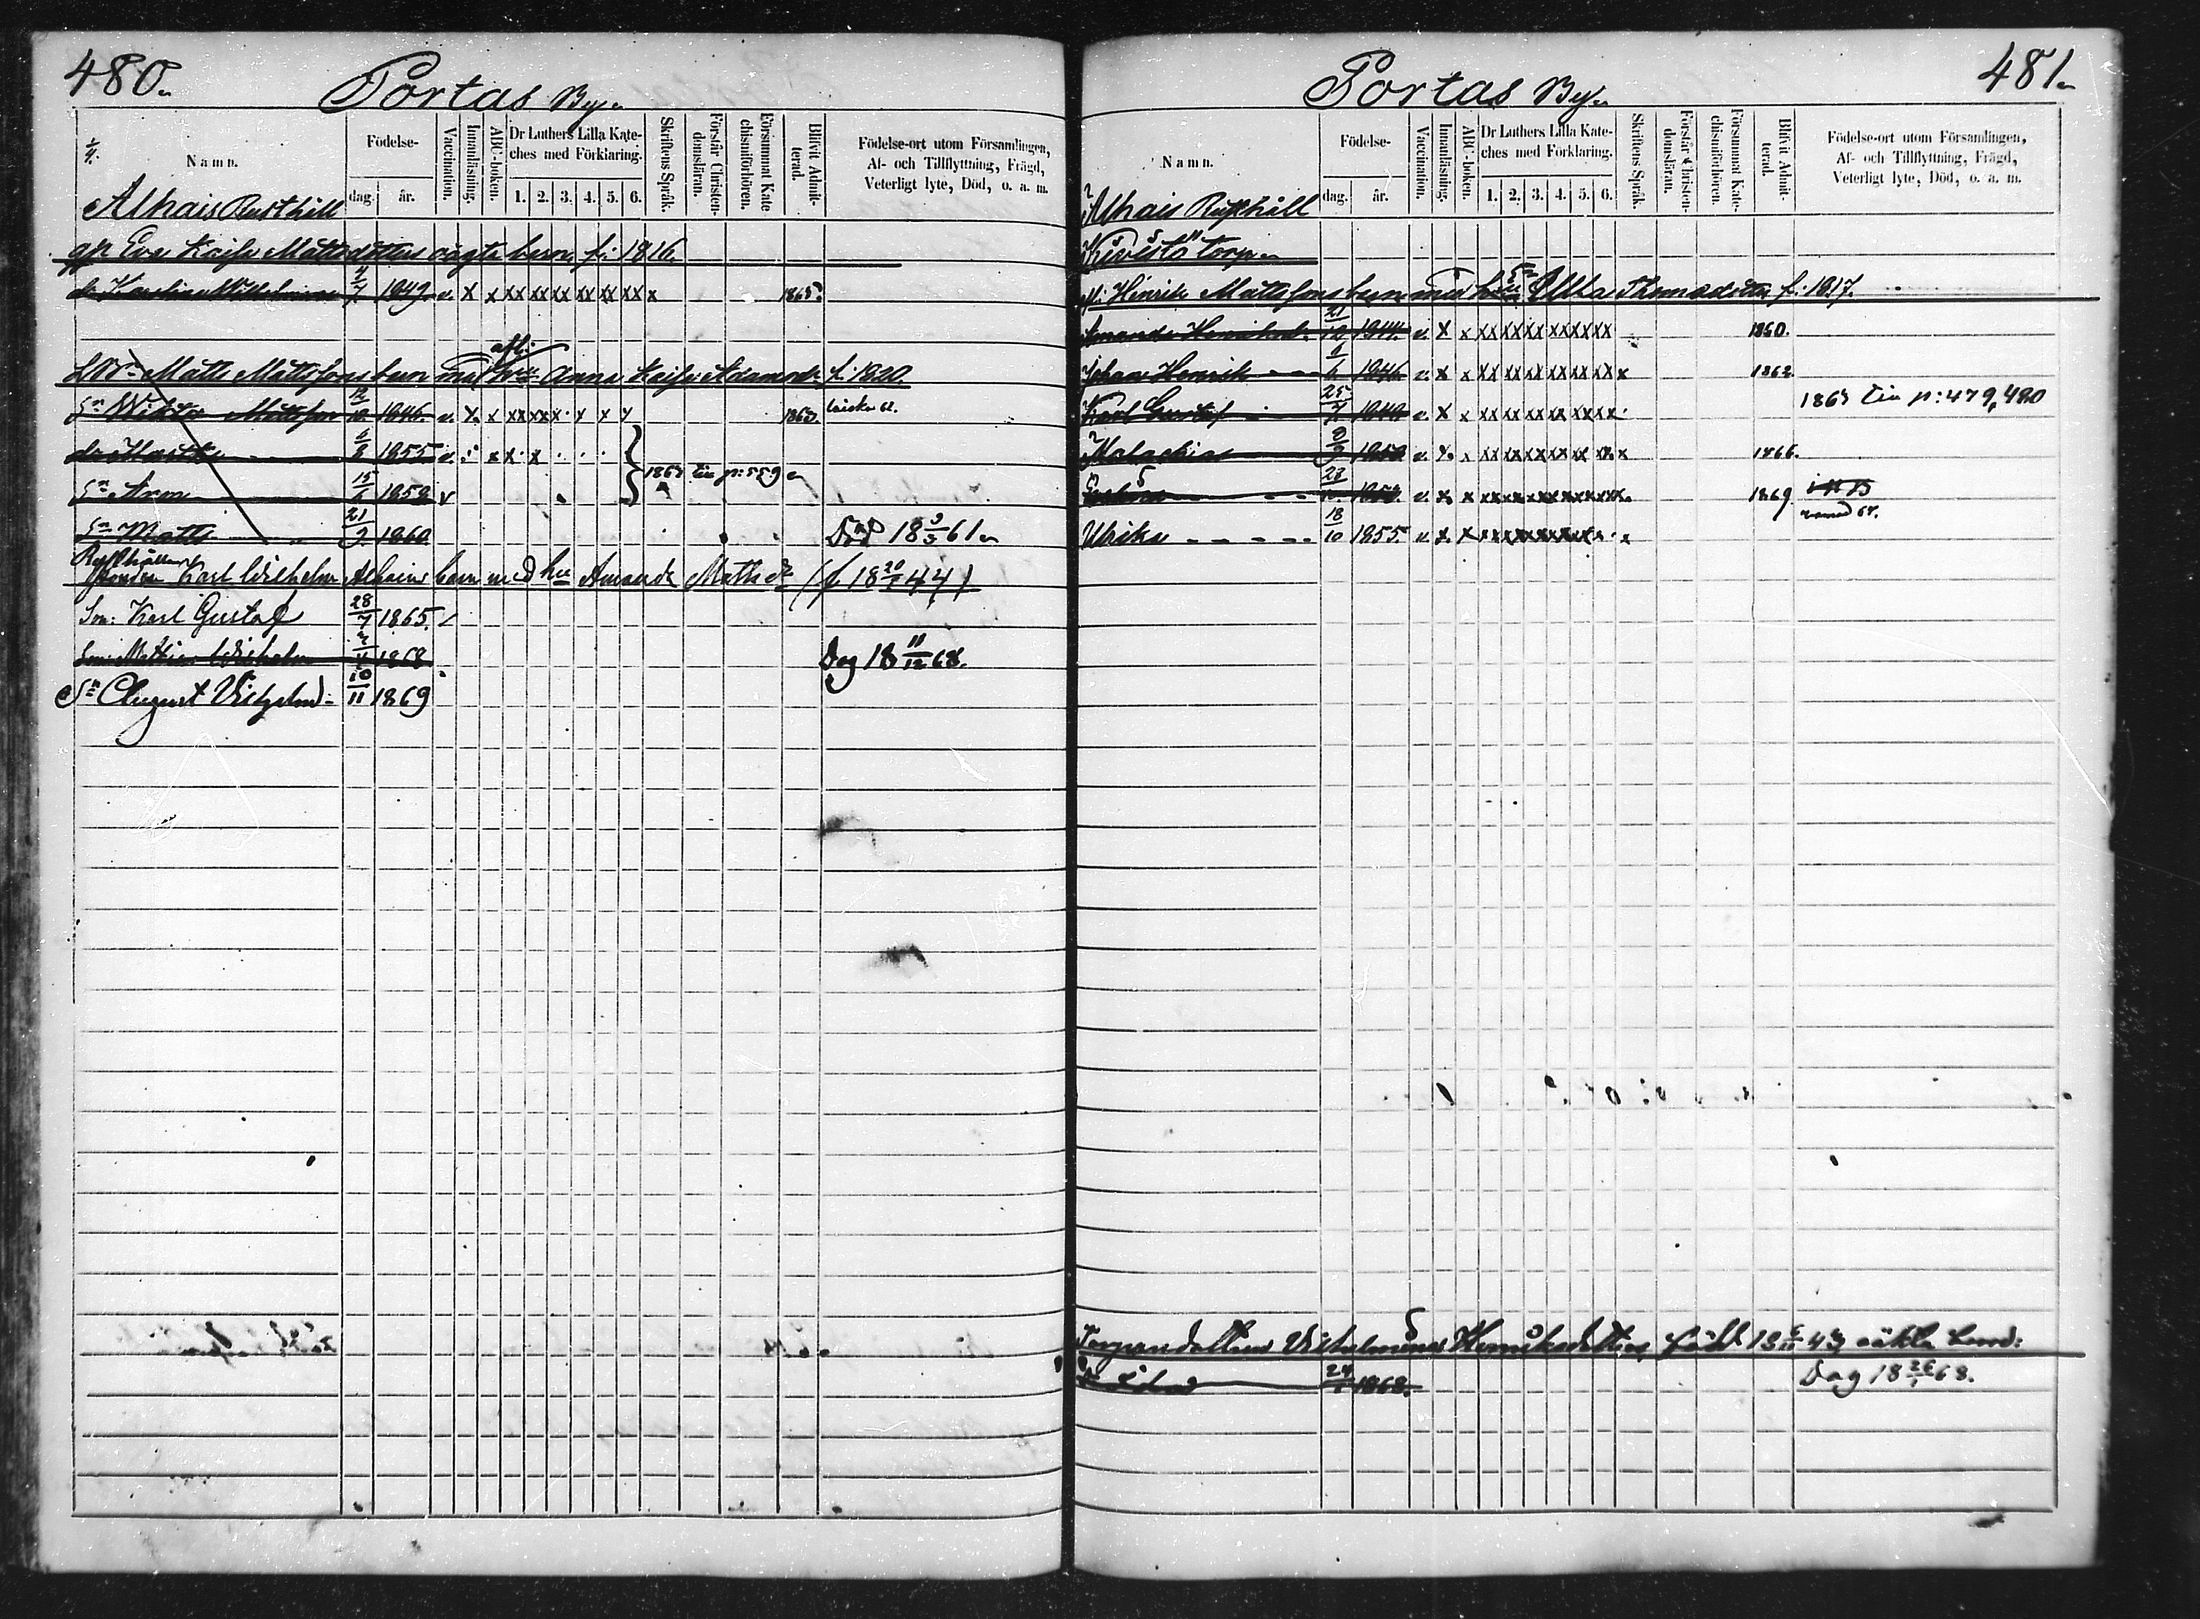 480.
Portas By.
1/4.
Namn.
Födelse-
dag.
år.
Vaccination.
Innanläsning.
ABC-boken.
Dr Luthers Lilla Kate-
ches med Förklaring.
1. 2. 3. 4. 5. 6.
Skriftens Språk.
Förstår Christen-
domsläran.
Försummat Kate
chismiförhören.
Blifvit Admit-
terad.
Födelse-ort utom Församlingen,
Af- och Tillflyttning, Frägd,
Veterligt lyte, Död, o. a. m.
Alhais Rusthåll
Eva Kaisa Mattsdotters oägta barn f: 1816.
dr Karolina Wilhelmina 4/7 1849. v. x x xx xx xx xx xx xx x 1865.
afl:
Matts Mattssons barn med hu Anna Kaisa Adamsdr f. 1820.
Sn Wiktor Mattsson 12/10 1846. v. x x xx xx x · x x x 1863.
6/8 1855 v.
1865 Em p: 559
Sn Aron 15/6 1858 v
Sn Matts 21/9 1860
Död 18 3/5 61
Rusthållaren
Karl Wilhelm Alhais barn med hu Amanda Mattsdr (f 18 20/7 44)
Son: Karl Gustaf 28/7 1865.
Son: Mattias Wilhelm 1868
Dog 18 11/12 68.
Sn August Vilhelm 10/11 1869
481.
Portas By.
Namn.
Födelse-
dag.
år.
Vaccination.
Innanläsning.
ABC-boken.
Dr Luthers Lilla Kate-
ches med Förklaring.
1. 2. 3. 4. 5. 6.
Skriftens Språk.
Förstår Christen-
domsläran.
Försummat Kate-
chismiförhören.
Blifvit Admit-
terad.
Födelse-ort utom Församlingen,
Af- och Tillflyttning, Frägd,
Veterligt lyte, Död, o. a. m.
Alhais Rusthåll
Kivistö torp
Henrik Mattssons barn med hu Ulla Thomasdotter f: 1817.
Amanda Henriksdr 21/12 1844. v. x x xx xx xx xx xx xx 1860.
Johan Henrik 6/6 1846 v. x x xx xx xx xx xx xx x 1862.
Karl Gustaf 25/7 1848 v. x x xx xx xx xx xx xx
1865 Em p: 479, 480
Malachias 1850 v. x x xx xx xx xx xx xx x 1866.
1869
Ulrika 18/10 1855 v. x x xx xx xx xx xx
Wilhelmina Henriksdotters född 18 43 oäkta barn:
24/1 1868.
Dog 18 26/1 68.